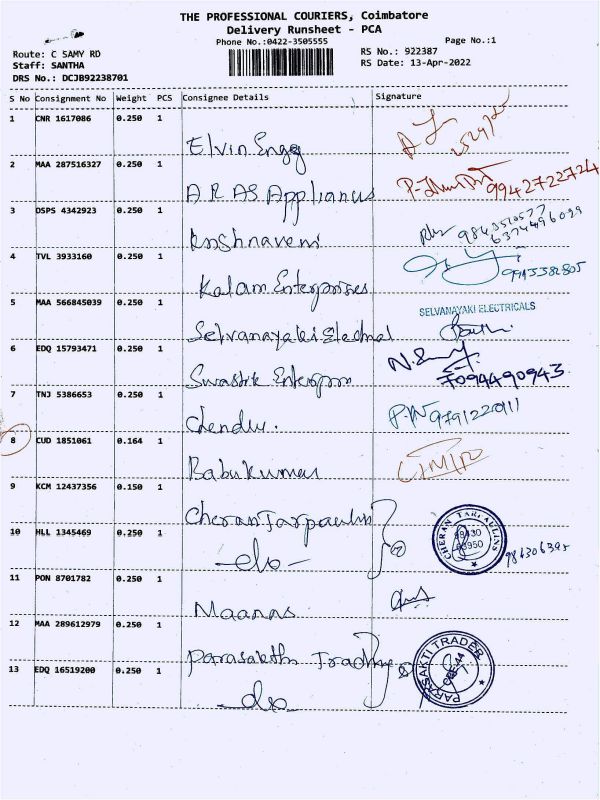 THE PROFESSIONAL COURIERS, Coimbatore
Delivery Runsheet - PCA
Phone No.:0422-3505555
Page No.:1
Route: C SAMY RD
Staff: SANTHA
DRS No.: DCJB92238701
RS No.: 922387
RS Date: 13-Apr-2022
S No Consignment No Weight PCS Consignee Details Signature
1 CNR 1617086 0.250 1
Elvin Engg
2 MAA 287516327 0.250 1
ARAS Appliances 9942722724
3 DSPS 4342923 0.250 1
Krishnaveni 6374496099
4 TVL 3933160 0.250 1
Kalam Enterprises
5 MAA 566845039 0.250 1
SELVANAYAKI ELECTRICALS
Selvanayaki Electrical
6 EDQ 15793471 0.250 1
Swastik Enterprise 7094490943
7 TNJ 5386653 0.250 1
Chendur.
8 CUD 1851061 0.164 1
Babu Kumar
9 KCM 12437356 0.150 1
Cheran Tarpaulin
CHERAN TARPAULINS
10 HLL 1345469 0.250 1
-do-
11 PON 8701782 0.250 1
Maanas
12 MAA 289612979 0.250 1
Parasakthi Trading
PARASAKTI TRADER
13 EDQ 16519200 0.250 1
-do-